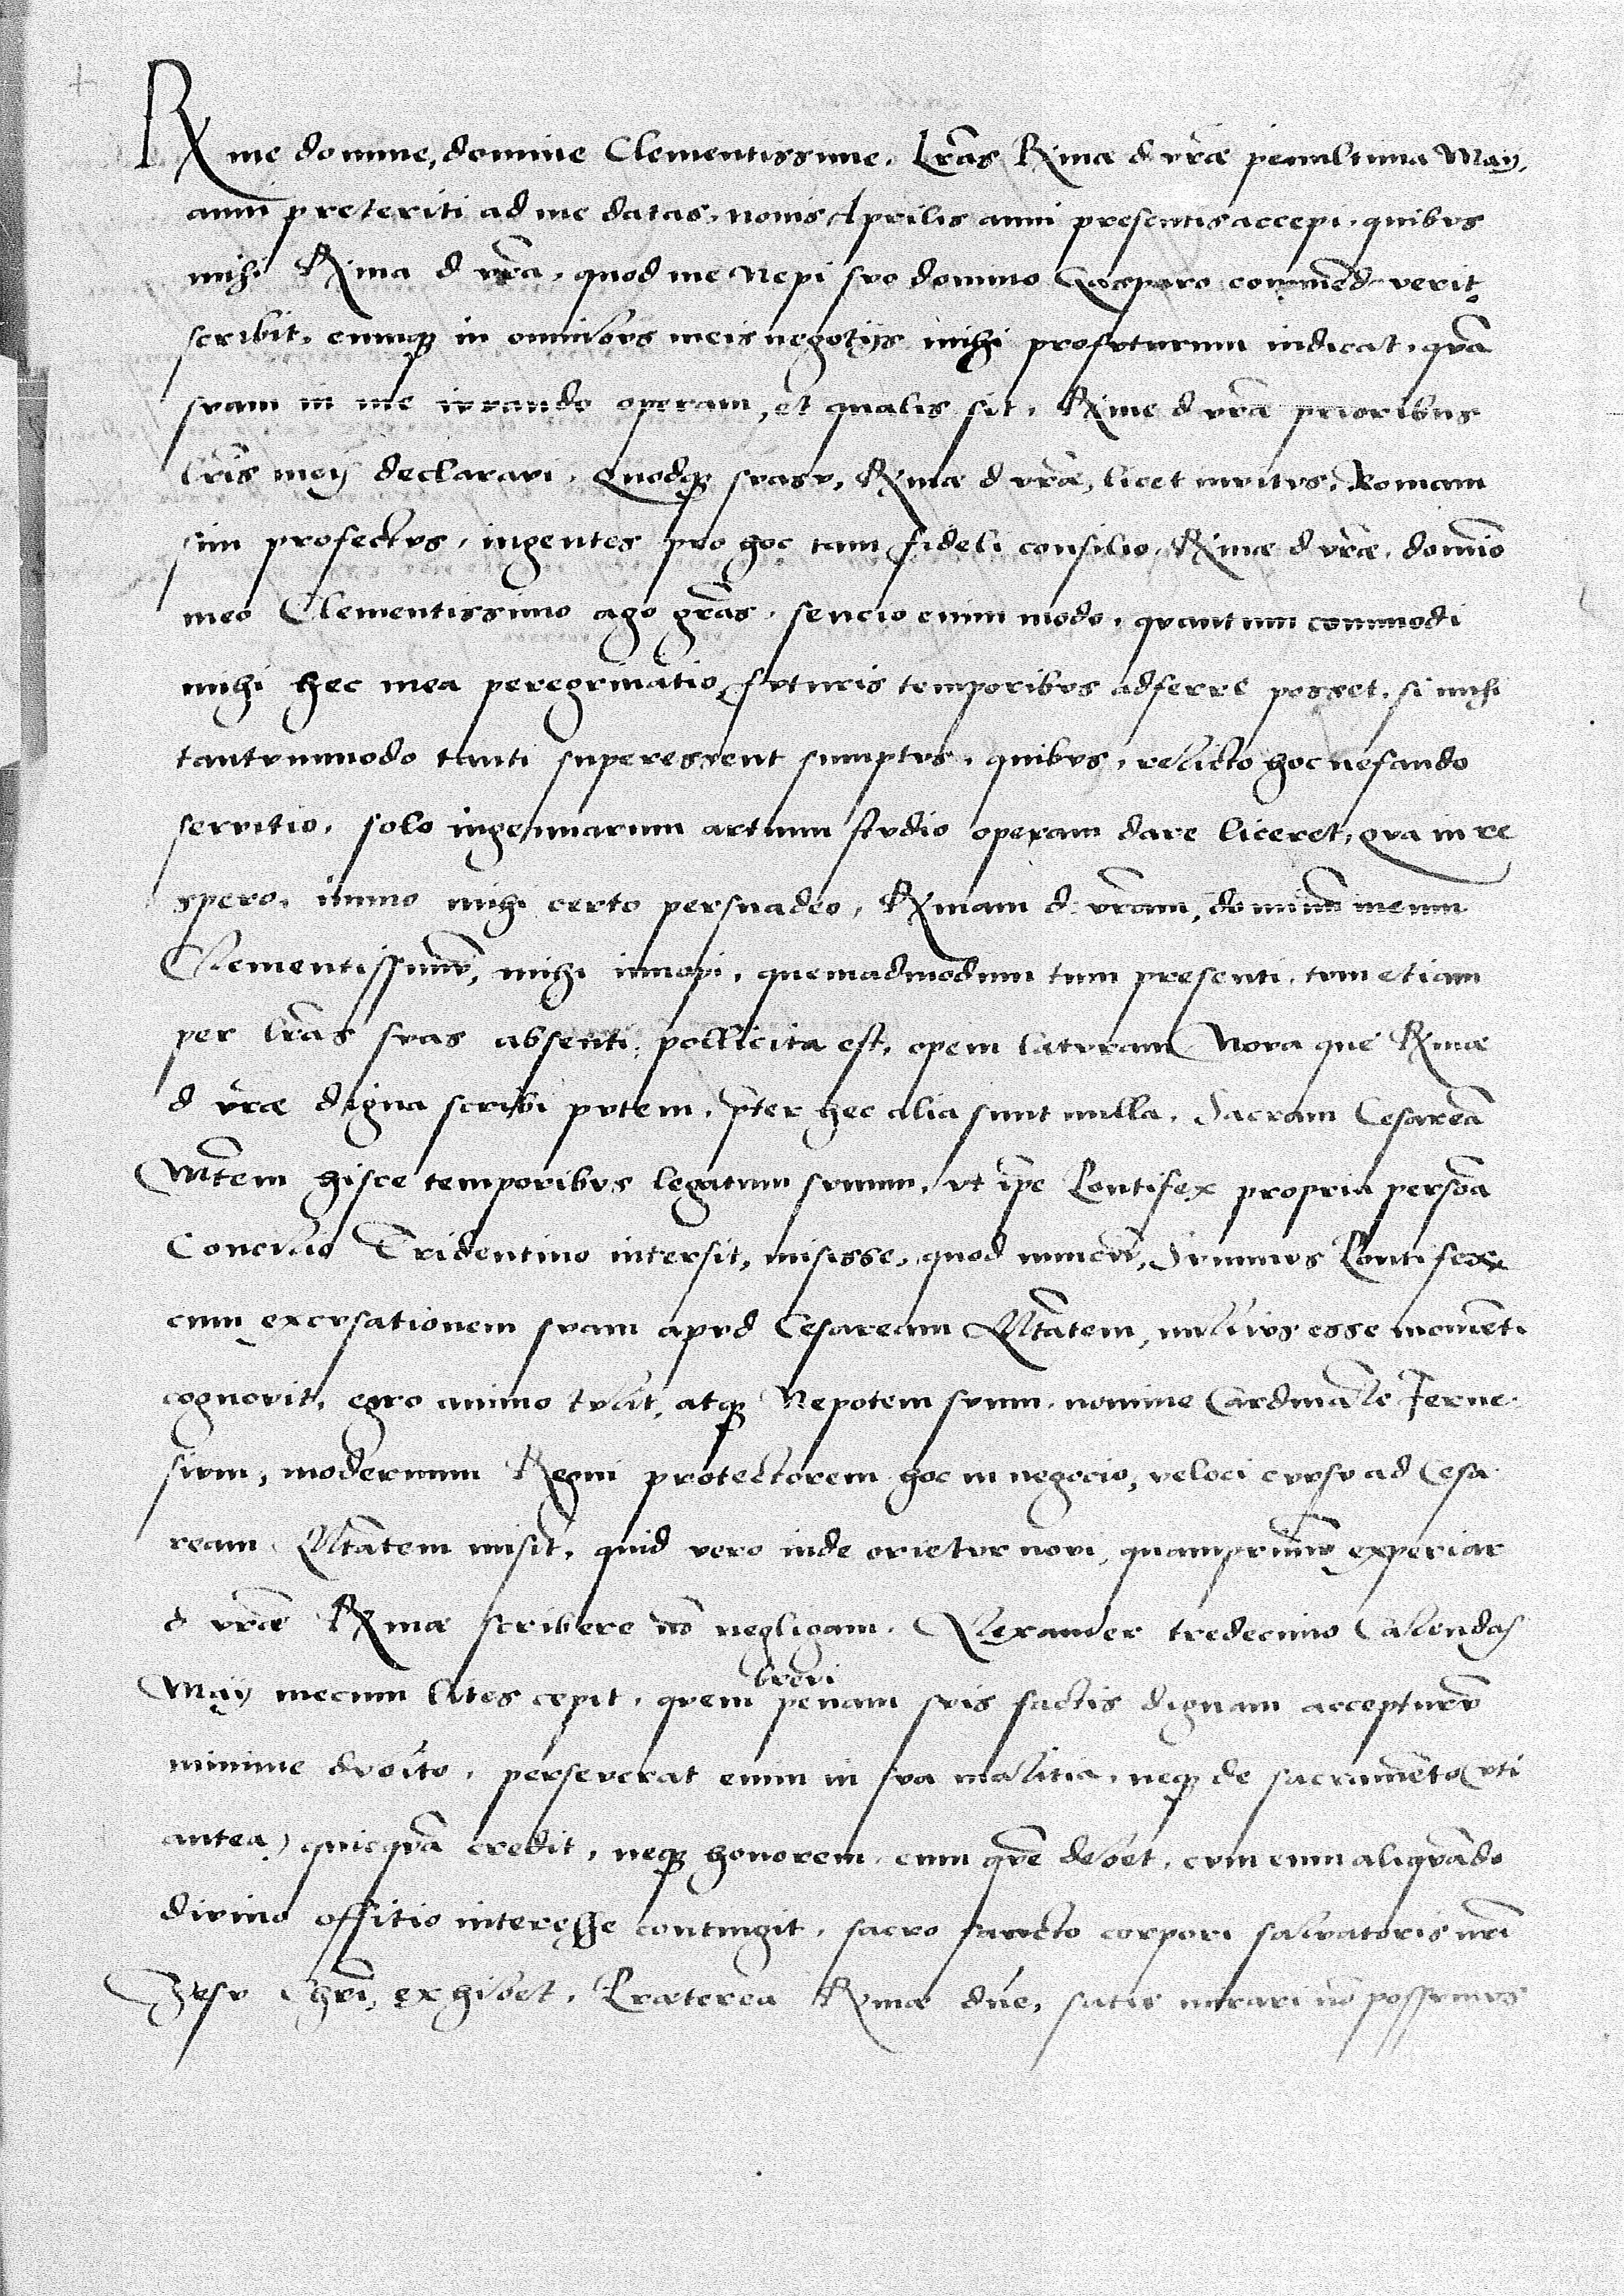 Rme domine, domine Clementissime. Lrãs Rmae d vrãe penultima Maÿ,
anni preteriti ad me datas, nonis Aprilis anni presentis accepi, quibvs
mihi Rma d vrã, quod me Nepi svo domino Gasparo commẽdaverit
scribit, eumqȝ in omnibvs meis negotijs mihi profvturum indicat, qvã
svam in me ivvando operam, et qualis sit, Rme d vrẽ prioribus
lrĩs meÿ declaravi. Quodqȝ svasv, Rmae d vrãe, licet invitvs, Romam
sim profectvs, ingentes pro hoc tam fideli consilio, Rmae d vrãe, domĩo
meo Clementissimo ago grãs, sencio enim modo, qvantum commodi
mihi hec mea peregrinatio, fvturis temporibvs adferre posset, si mihi
tantvmmodo tanti superessent sumptvs, quibvs, relicto hoc nefando
servitio, solo ingenuarum artium stvdio operam dare liceret, qva in re
spero, immo mihi certo persuadeo, Rmam d vrãm, dominũ meum
Clementissimũ, mihi innopi, quemadmodum tum presenti, tvm etiam
per lrãs svas absenti, pollicita est, opem latvram. Nova que Rmae
d vrãe digna scribi pvtem, pter hec alia sunt nulla. Sacram Cesareã
Mtẽm hisce temporibvs legatum svum, vt ipe Pontifex propria persõa
Concilio Tridentino intersit, misisse, quod nunciũ, Svmmvs Pontifex
cum excvsationem svam apvd Cesaream Mtãtem, nullivs esse momẽti
cognovit, egro animo tvlit, atqȝ Nepotem svum, nomine Cardinalẽ Ferne
sivm, modernum Regni protectorem hoc in negocio, veloci cvrsv ad Cesa
ream Mtãtem misit, quid vero inde orietvr novi, quamprimũ experiar
d vrãe Rmae scribere nõ negligam. Alexander tredecimo Calendas
Maÿ mecum lites cepit, qvem brevi penam svis factis dignam accepturũ
minime dvbito, perseverat enim in sva malitia, neqȝ de sacramẽto (vti
antea) quicqvã credit, neqȝ honorem, eum qvẽ debet, cvm eum aliqvãdo
divino offitio interesse contingit, sacro sancto corpori salvatoris nrĩ
Jesv Chrĩ, exhibet. Praeterea Rmae dne, satis mirari nõ possvmvs